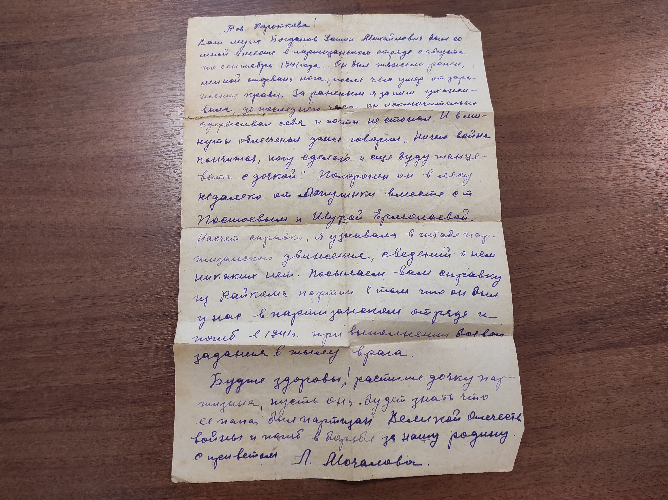 Тов. Горюнкова!
Ваш муж Богданов Михайлович был со
мной вместе в партизанском отряде с августа
по сентябрь 1941 года. Он был тяжело ранен,
нога, после чего умер от зара-
жения крови. За раненым я сама ухажи-
вала, до последнего часа он исключительно
себя и почти не стонал. И в ми-
нуты облегчения даже говорил, Ничего война
кончится, ногу сделаю и еще буду танце-
вать с дочкой! Похоронен он в лесу
недалеко от вместе с
и Шурой Ермолаевой.
Насчет справки, я узнавала в штабе пар-
тизанского движения, сведений о нем
никаких нет. Посылаем вам справку
из Райкома партии о том что он был
у нас в партизанском отряде и
погиб в 1941г. при выполнении боевого
задания в тылу врага.
Будьте здоровы! растите дочку пар-
тизана, пусть она будет знать что
ее папа был партизан Великой Отечеств
войны и погиб в борьбе за нашу родину.
С приветом Л. Мочалова.